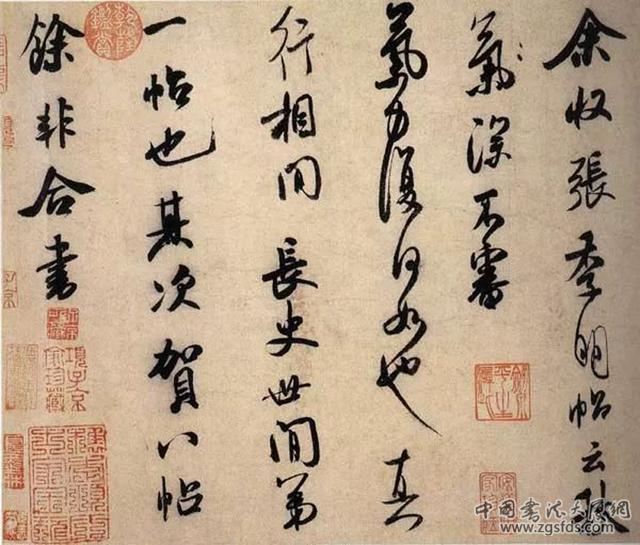 余收張季明帖云秋
氣深不審
氣力復何如也真
行相間長史世間第
一帖也其次賀八帖
餘非合書
乾隆鑑賞
項子京家珍藏
中国书法大展网
www.zgsfds.com